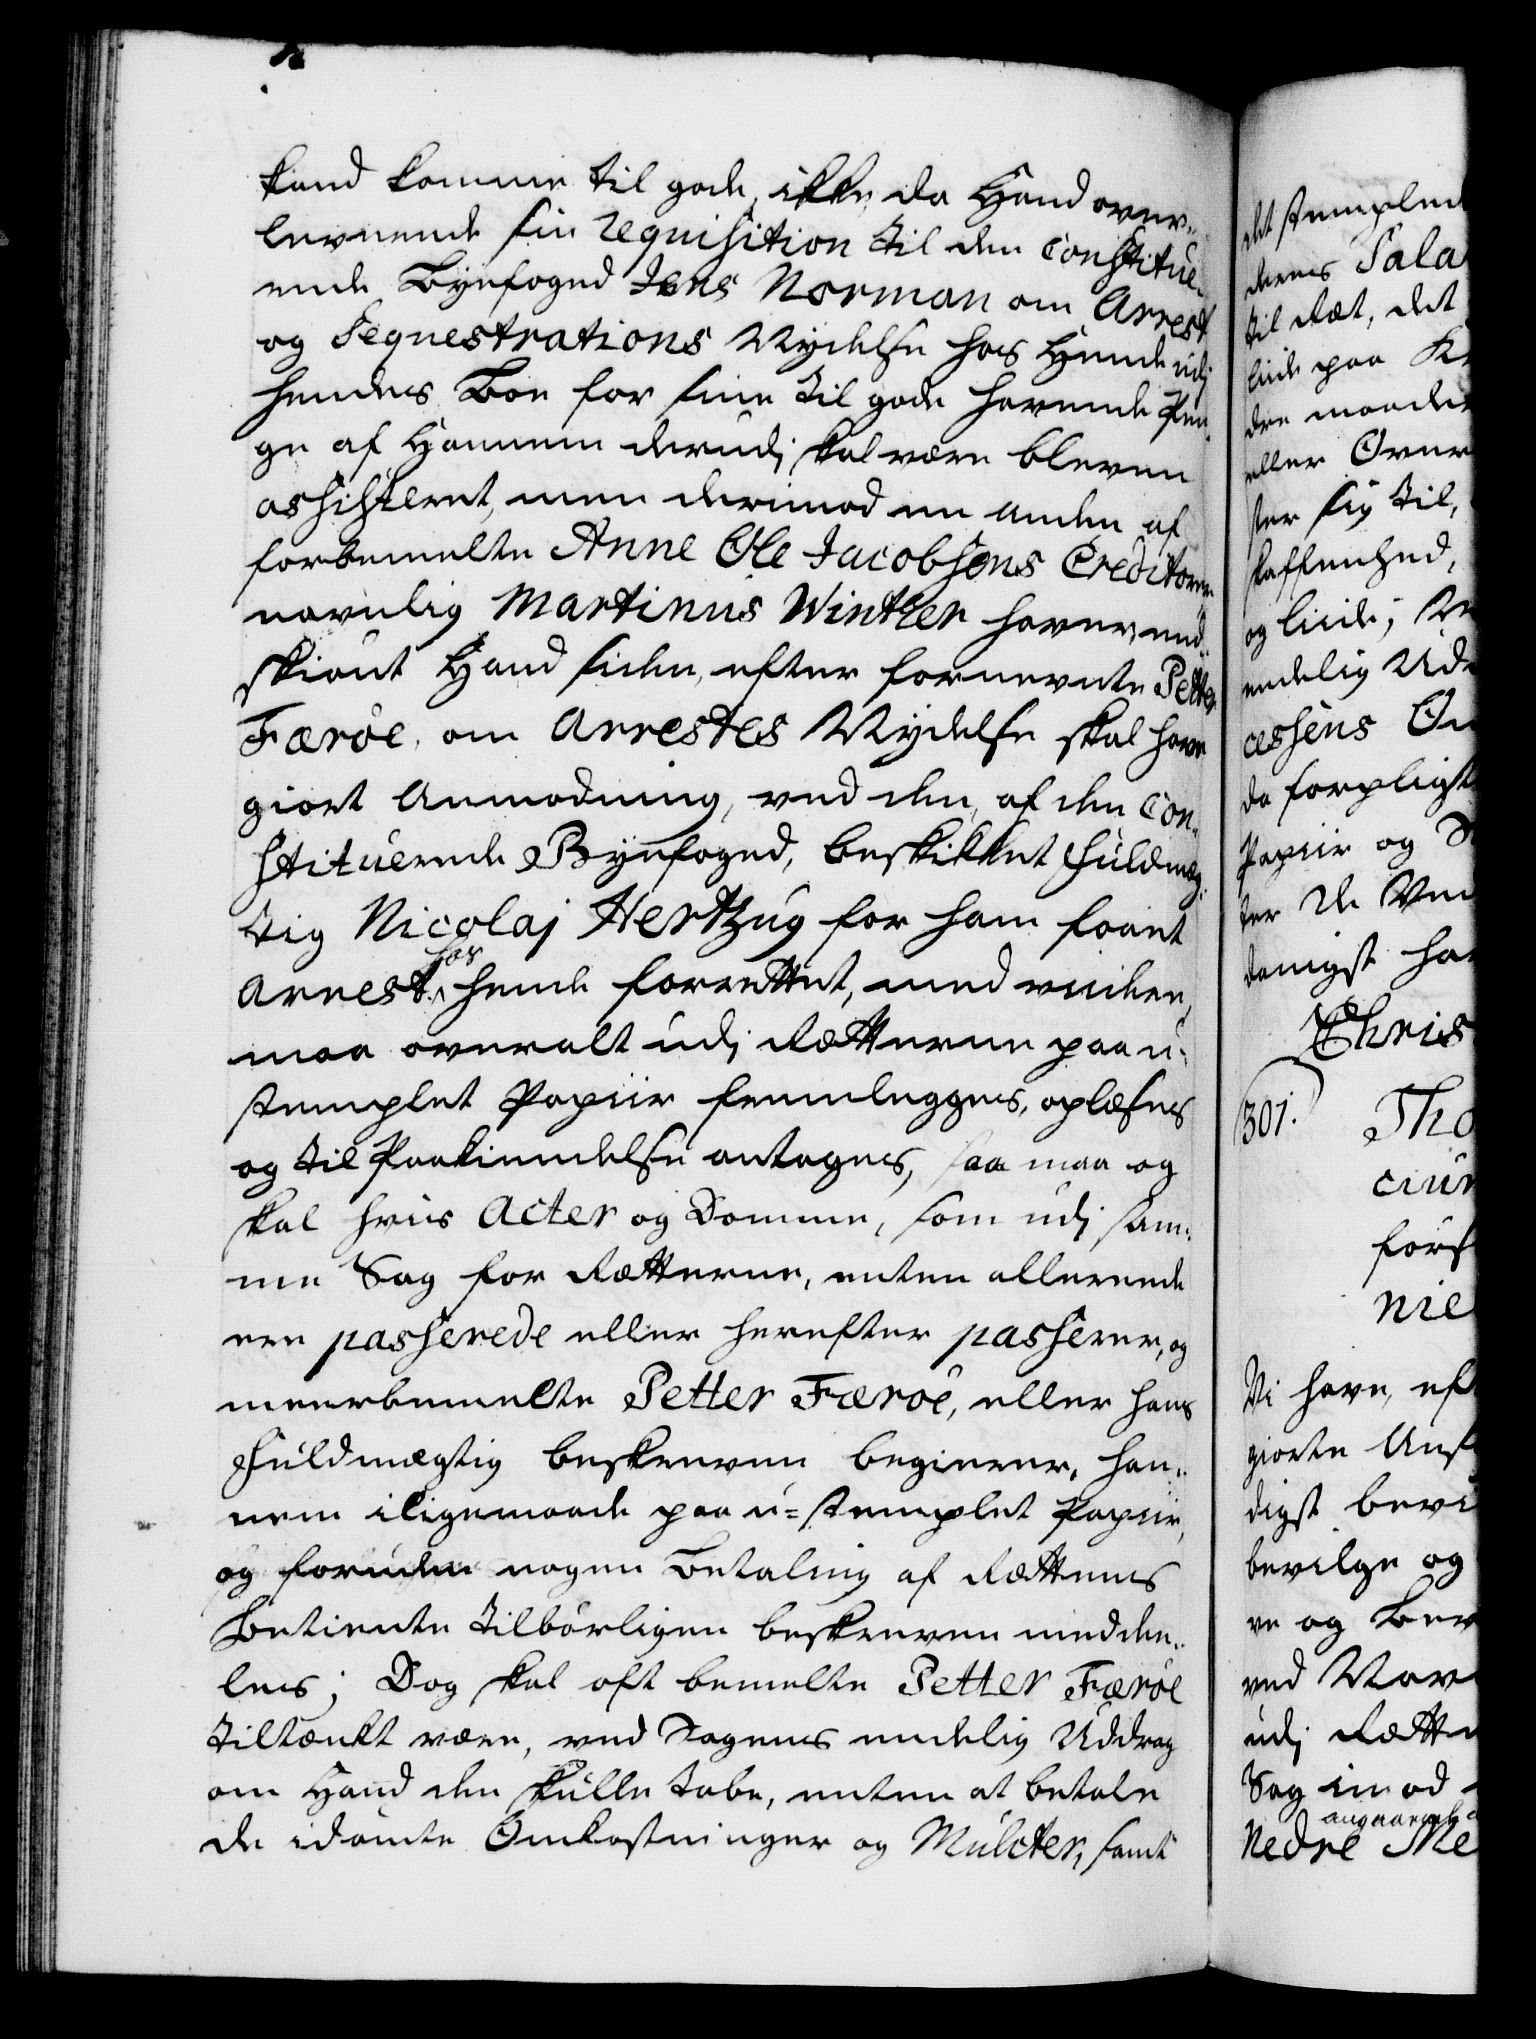 kand komme til gode, ikke da Hand over-
leverede sin requisition til den Constitue-
rende Byefoged Jens Norman om Arrest
og Sequestrations Nydelse hos Hende udj
hendes Boe for sine til gode havende Pen-
ge af Hannem derudj skal være bleven
assisteret, men derimod en anden af
forbemelte Anne Ole Jacobsens Creditorer
navnlig Martinus Winther haver, end-
skiønt Hand siden, efter fornevnte Petter
Færöe, om Arrestes Nydelse skal have
giort Anmodning, ved den, af den Con-
stituerende Byefoged, beskikket Fuldmæg-
tig Nicolaj Hertzug for ham faaet
Arrest hos hende forrettet, med videre,
maa overalt udj Rætterne paa u-
stemplet Papiir fremlegges, oplæses
og til Paakiendelse antages, saa maa og
skal hvis Acter og Domme, som udj sam-
me Sag for Rætterne, enten allereede
ere passerede eller herefter passerer, og
meerbemelte Petter Færöe, eller hans
Fuldmægtig beskreven begierer, han-
nem iligemaade paa u-stemplet Papiir,
og foruden nogen Betaling af Rættens
Betiente tilbörligen beskreven meddee-
les; Dog skal oft bemelte Petter Færöe
tiltænkt være, ved Sagens endelig Uddrag
om Hand den skulle tabe, enten at betale
de idömte Omkostninger og Mulcter, samt
det stempled
deres Sala
til Ræt, det
liide paa K
dre maade
eller Över
ter sig til,
skaffenhed,
og liide; 
endelig Ud
cessens Om
da forpligt
Papiir og S
ter de Ved
danigst ha
Chris
301. Tho
ciur
fors
nie
Vi have, eft
giorte Ans
digst bevi
bevilge og
ve og bev
ved Vor
udj Rætte
Sag imod
angaaende
Nedre Me